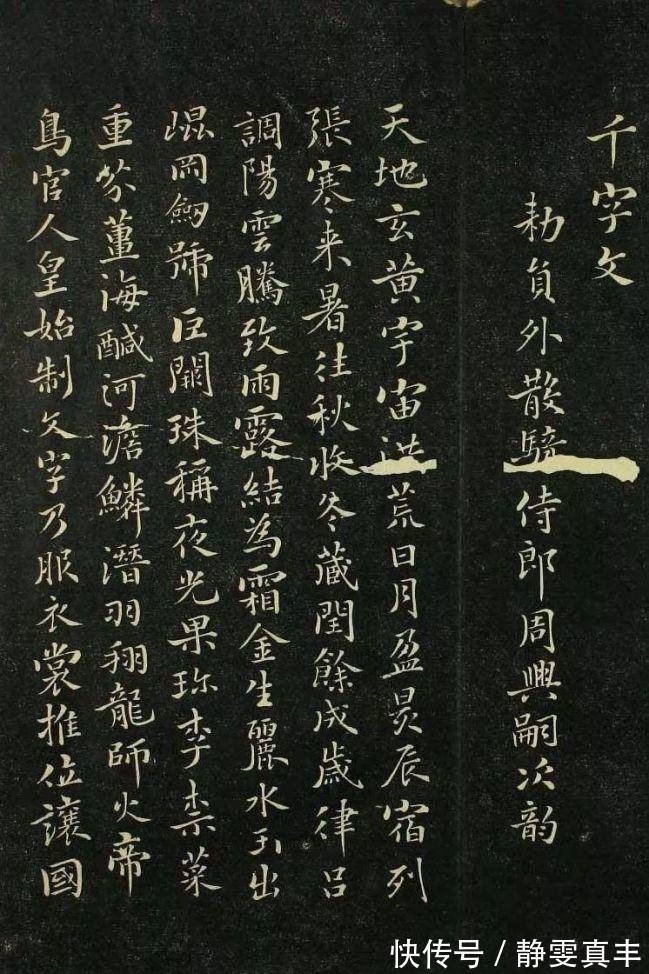 千字文
勑員外散騎侍郎周興嗣次韵
天地玄黃宇宙洪荒日月盈昃辰宿列
張寒来暑往秋收冬藏閏餘成歲律吕
調陽雲騰致雨露結為霜金生麗水玉出
崐岡劒號巨闕珠稱夜光果珎李柰菜
重芥薑海醎河澹鱗潛羽翔龍師火帝
鳥官人皇始制文字乃服衣裳推位讓國
快传号/静雯真丰